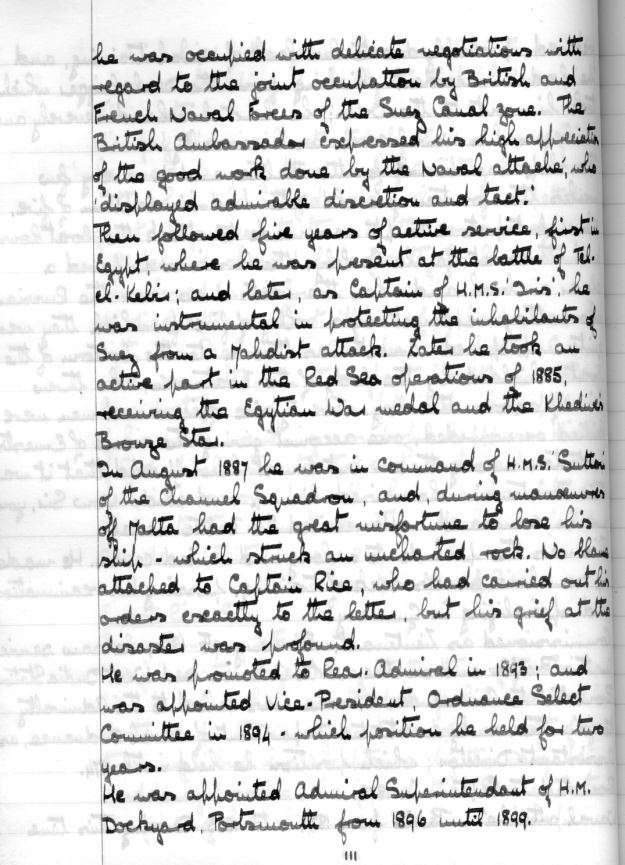 he was occupied with delicate negotiations with
regard to the joint occupation by British and
French Naval Forces of the Suez Canal zone. The
British Ambassador expressed his high appreciation
of the good work done by the Naval attaché, who
'displayed admirable discretion and tact.'
Then followed five years of active service, first in
Egypt, where he was present at the battle of Tel-
el-Kebir; and later, as Captain of H.M.S. 'Iris', he
was instrumental in protecting the inhabitants of
Suez from a Mahdist attack. Later he took an
active part in the Red Sea operations of 1885,
receiving the Egytian War medal and the Khedive's
Bronze Star.
In August 1887 he was in command of H.M.S. 'Sultan'
of the Channel Squadron, and, during manoeuvres
off Malta had the great misfortune to lose his
ship - which struck an uncharted rock. No blame
attached to Captain Rice, who had carried out his
orders exactly to the letter, but his grief at the
disaster was profound.
He was promoted to Rear-Admiral in 1893; and
was appointed Vice-President, Ordnance Select
Committee in 1894 - which position he held for two
years.
He was appointed Admiral Superintendant of H.M.
Dockyard, Portsmouth from 1896 until 1899.
111